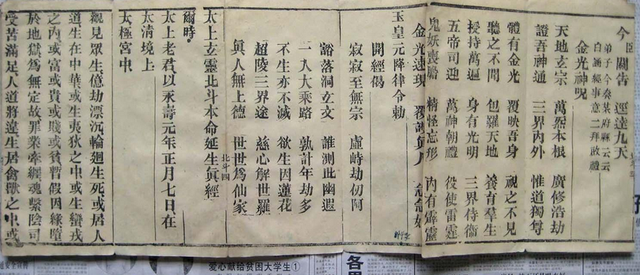 今 關告 逕達九天
弟子 今奏某府縣云云
事意 二拜
金光神呪
天地玄宗 萬炁本根 廣修浩劫
證吾神通 三界內外 惟道獨尊
體有金光 覆映吾身 視之不見
聽之不聞 包羅天地 養育羣生
授持萬遍 身有光明 三界侍衛
五帝司迎 萬神朝禮 役使雷霆
鬼妖喪膽 精怪忘形 內有霹靂
金光速現 覆護真人 急急如
玉皇元降律令勅
開經偈
寂寂至無宗 虛峙劫仞阿
豁落洞玄文 誰測此幽遐
一入大乘路 孰計年劫多
不生亦不滅 欲生因蓮花
超陵三界途 慈心解世羅
真人無上德 世世為仙家
北斗 四
太上玄靈北斗本命延生真經
爾時
太上老君以永壽元年正月七日在
太清境上
太極宮中
觀見眾生億劫漂沉輪迴生死或居人
道生在中華或生夷狄之中或生蠻戎
之內或富或貴或賤或貧暫假因緣墮
於地獄為無定故罪業牽纏魂繫陰司
受苦滿足人道將違生居禽獸之中或
爱心献给贫困大学生①